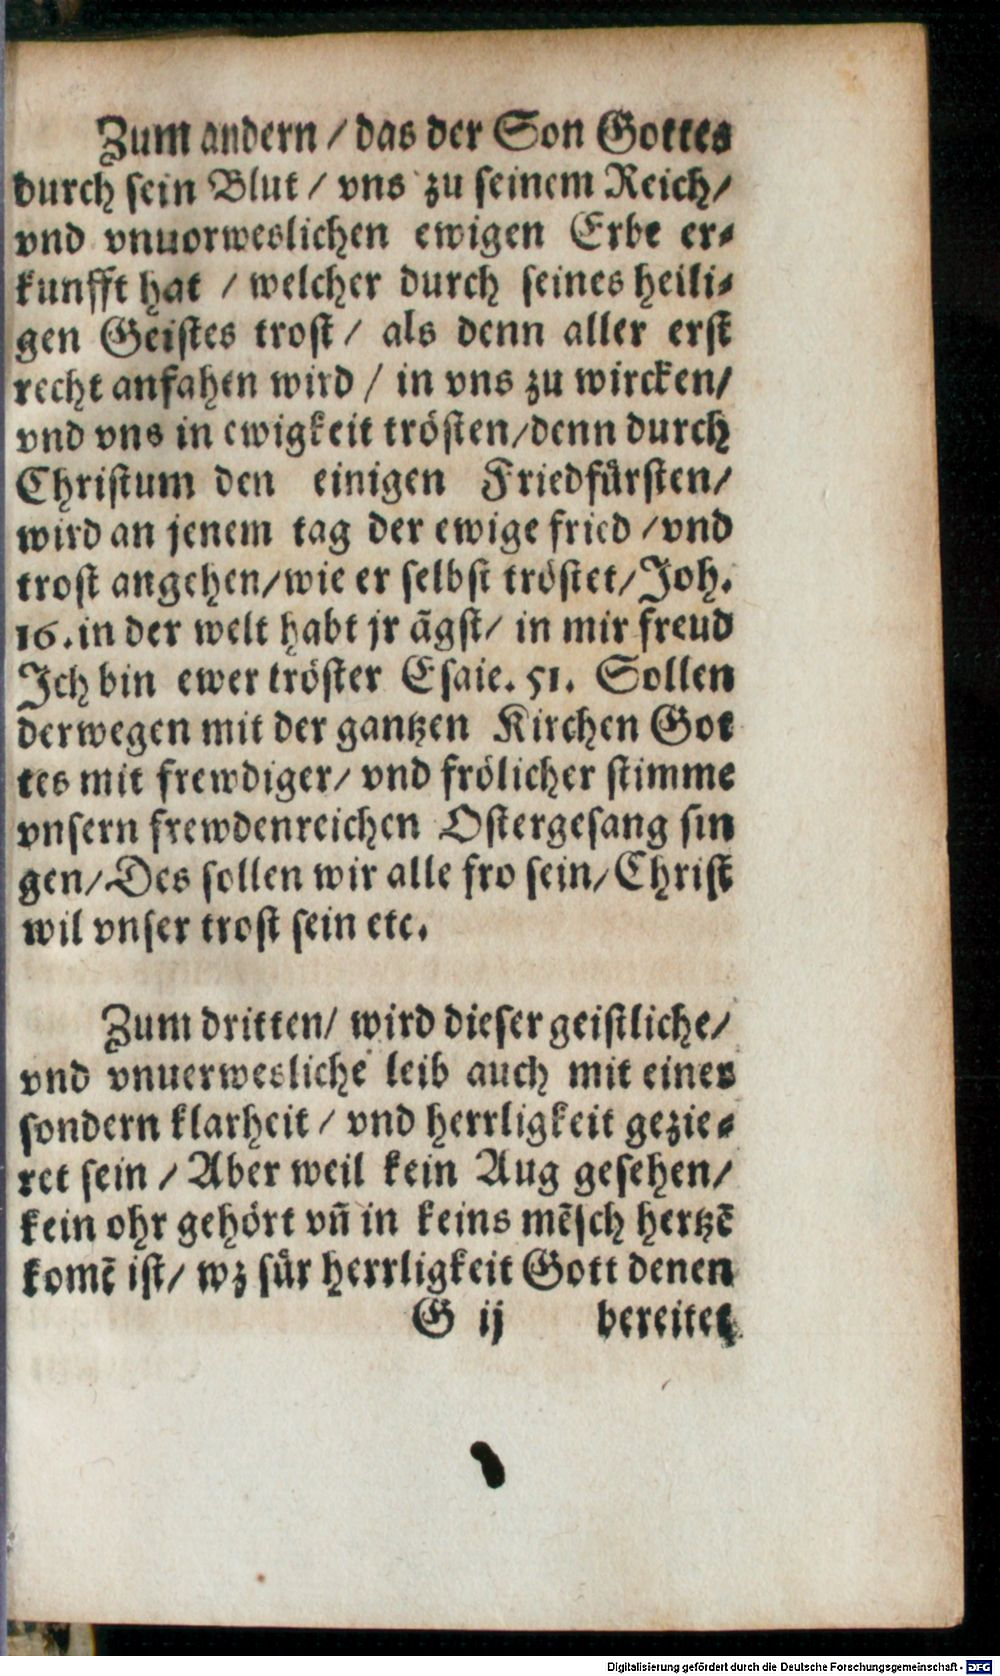 Zum andern / das der Son Gottes
durch sein Blut / vns zu seinem Reich/
vnd vnuorweslichen ewigen Erbe er⸗
kunfft hat / welcher durch seines heili⸗
gen Geistes trost / als denn aller erst
recht anfahen wird / in vns zu wircken/
vnd vns in ewigkeit trösten/denn durch
Christum den einigen Friedfürsten/
wird an jenem tag der ewige fried /vnd
trost angehen/wie er selbst tröstet/Joh.
16.in der welt habt jr ãgst/ in mir freud
Ich bin ewer tröster Esaie. 51. Sollen
derwegen mit der gantzen Kirchen Got
tes mit frewdiger/ vnd frölicher stimme
vnsern frewdenreichen Ostergesang sin
gen/Des sollen wir alle fro sein/Christ
wil vnser trost sein etc.
Zum dritten/ wird dieser geistliche/
vnd vnuerwesliche leib auch mit einer
sondern klarheit / vnd herrligkeit gezie⸗
ret sein / Aber weil kein Aug gesehen/
kein ohr gehört vñ in keins mẽsch hertzẽ
komẽ ist/ wz für herrligkeit Gott denen
G ij bereitet
Digitalisierung gefördert durch die Deutsche Forschungsgemeinschaft - DFG